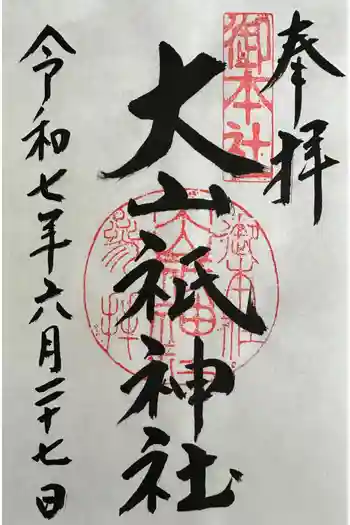 奉拝
御本社
大山祇神社
令和七年六月二十七日